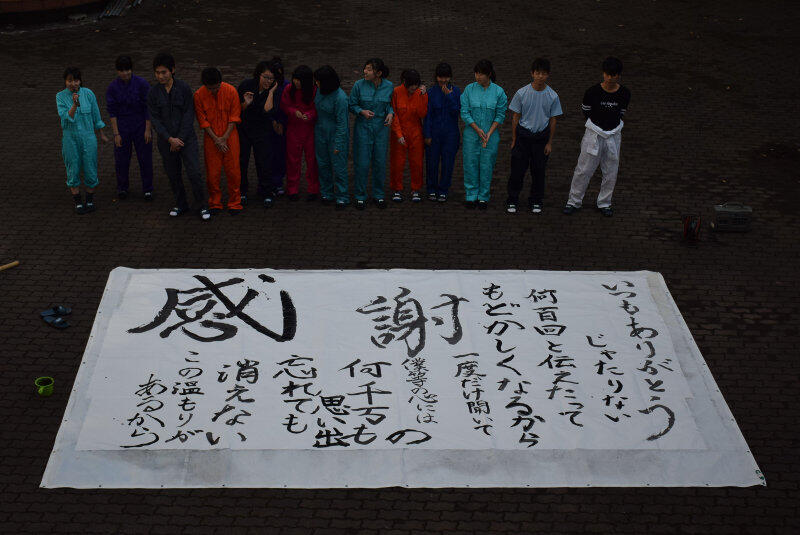 感謝
いつもありがとう
じゃたりない
何百回と伝えたって
もどかしくなるから
一度だけ開いて
僕等の心には
何千万もの
思い出
忘れても
消えない
この温もりが
あるから